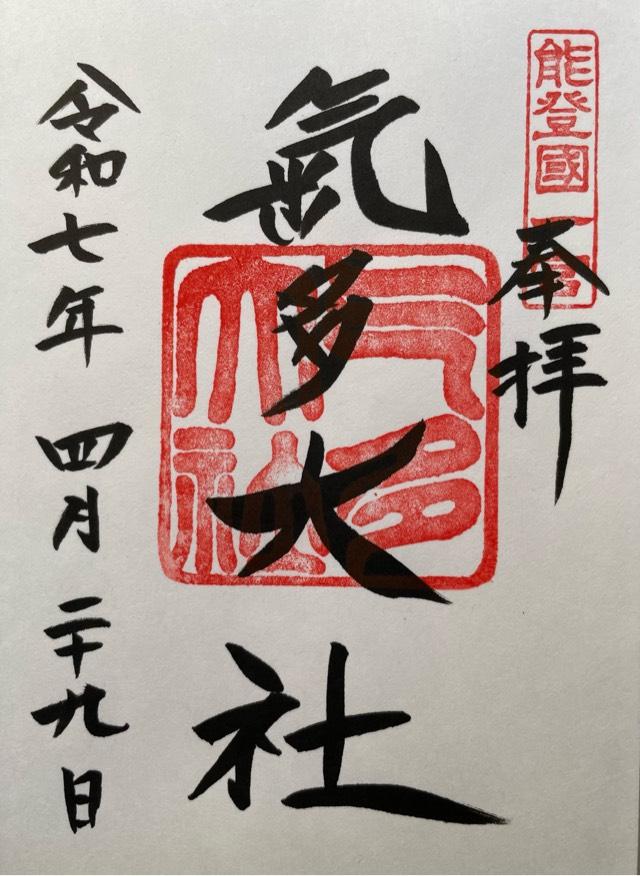 能登國一宮
奉拝
氣多大社
气多大社
令和七年 四月二十九日